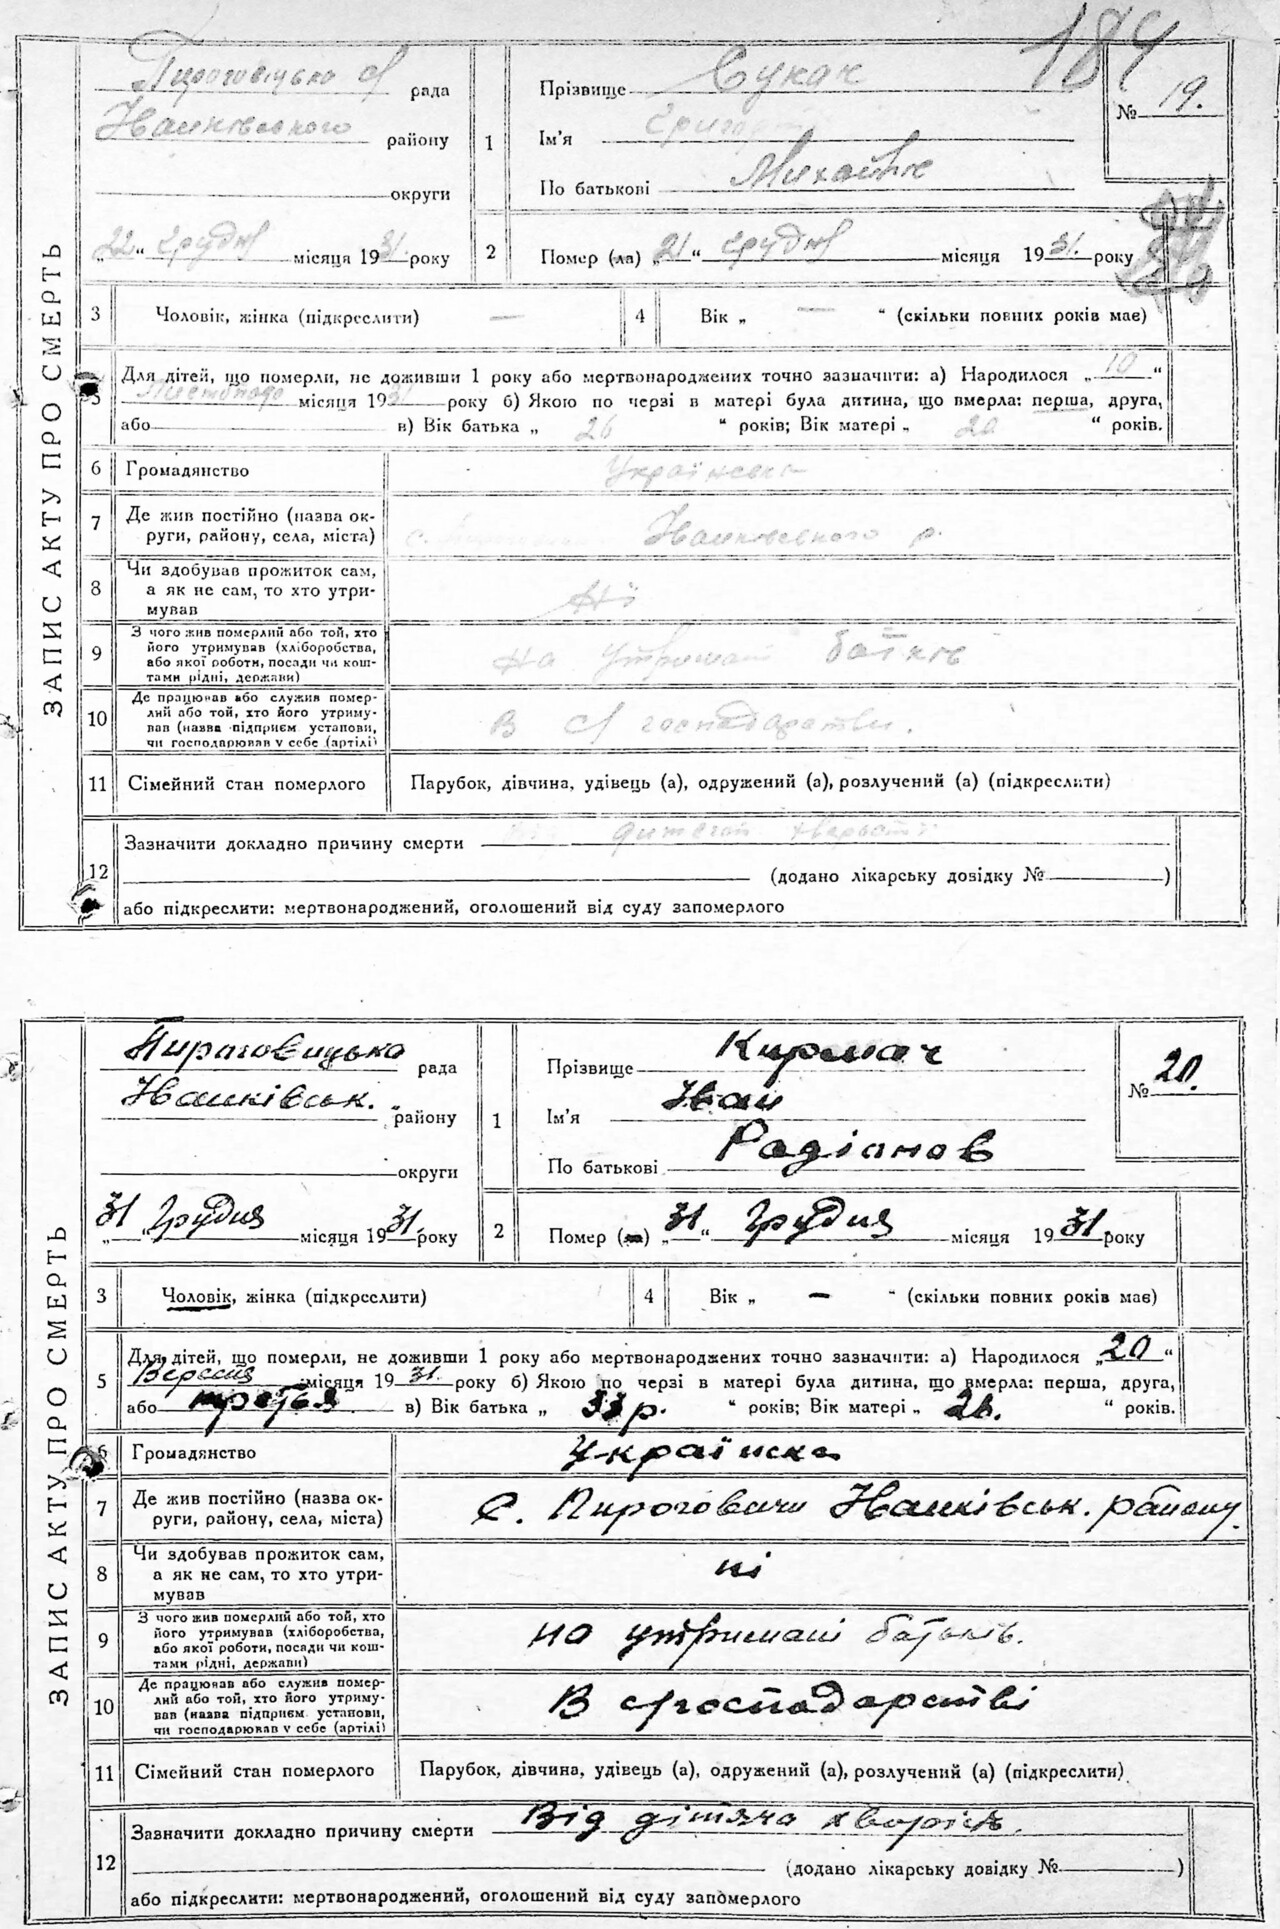 184
ЗАПИС АКТУ ПРО СМЕРТЬ
Пироговицька рада
Іванківського району
округи
„22“ Грудня місяця 1931. року
1 Прізвище Сукач
Ім'я Григор
По батькові Михайлів
№ 19.
2 Помер (ла) „21“ Грудня місяця 1931. року
3 Чоловік, жінка (підкреслити) —
4 Вік „ — “ (скільки повних років має)
5 Для дітей, що померли, не доживши 1 року або мертвонароджених точно зазначити: а) Народилося „10“
Листопада місяця 1931 року б) Якою по черзі в матері була дитина, що вмерла: перша, друга,
або в) Вік батька „ 26 “ років; Вік матері „ 20 “ років.
6 Громадянство Українська
7 Де жив постійно (назва ок-
руги, району, села, міста) с. Іванківського р.
8 Чи здобував прожиток сам,
а як не сам, то хто утри-
мував Ні
9 З чого жив померлий або той, хто
його утримував (хліборобства,
або якої роботи, посади чи кош-
тами рідні, держави) на утримані батьків
10 Де працював або служив помер-
лий або той, хто його утриму-
вав (назва підприєм. установи,
чи господарював у себе (артілі) В с/господарстві.
11 Сімейний стан померлого Парубок, дівчина, удівець (а), одружений (а), розлучений (а) (підкреслити)
12 Зазначити докладно причину смерти
(додано лікарську довідку № )
або підкреслити: мертвонароджений, оголошений від суду запомерлого
ЗАПИС АКТУ ПРО СМЕРТЬ
Пироговицька рада
Іванківськ. району
округи
„31“ Грудня місяця 1931. року
1 Прізвище Кирмач
Ім'я Іван
По батькові Радіонов
№ 20.
2 Помер ( ) „31“ Грудня місяця 1931 року
3 Чоловік, жінка (підкреслити)
4 Вік „ — “ (скільки повних років має)
5 Для дітей, що померли, не доживши 1 року або мертвонароджених точно зазначити: а) Народилося „20“
Вересня місяця 1931. року б) Якою по черзі в матері була дитина, що вмерла: перша, друга,
або третья в) Вік батька „ 33 р. “ років; Вік матері „ 28. “ років.
6 Громадянство Україньска
7 Де жив постійно (назва ок-
руги, району, села, міста) С. Пироговичи Іванківськ. району.
8 Чи здобував прожиток сам,
а як не сам, то хто утри-
мував ні
9 З чого жив померлий або той, хто
його утримував (хліборобства,
або якої роботи, посади чи кош-
тами рідні, держави) на утримані батьків.
10 Де працював або служив помер-
лий або той, хто його утриму-
вав (назва підприєм. установи,
чи господарював у себе (артілі) В с/господарстві
11 Сімейний стан померлого Парубок, дівчина, удівець (а), одружений (а), розлучений (а) (підкреслити)
12 Зазначити докладно причину смерти Від дітяча хворість.
(додано лікарську довідку № )
або підкреслити: мертвонароджений, оголошений від суду запомерлого